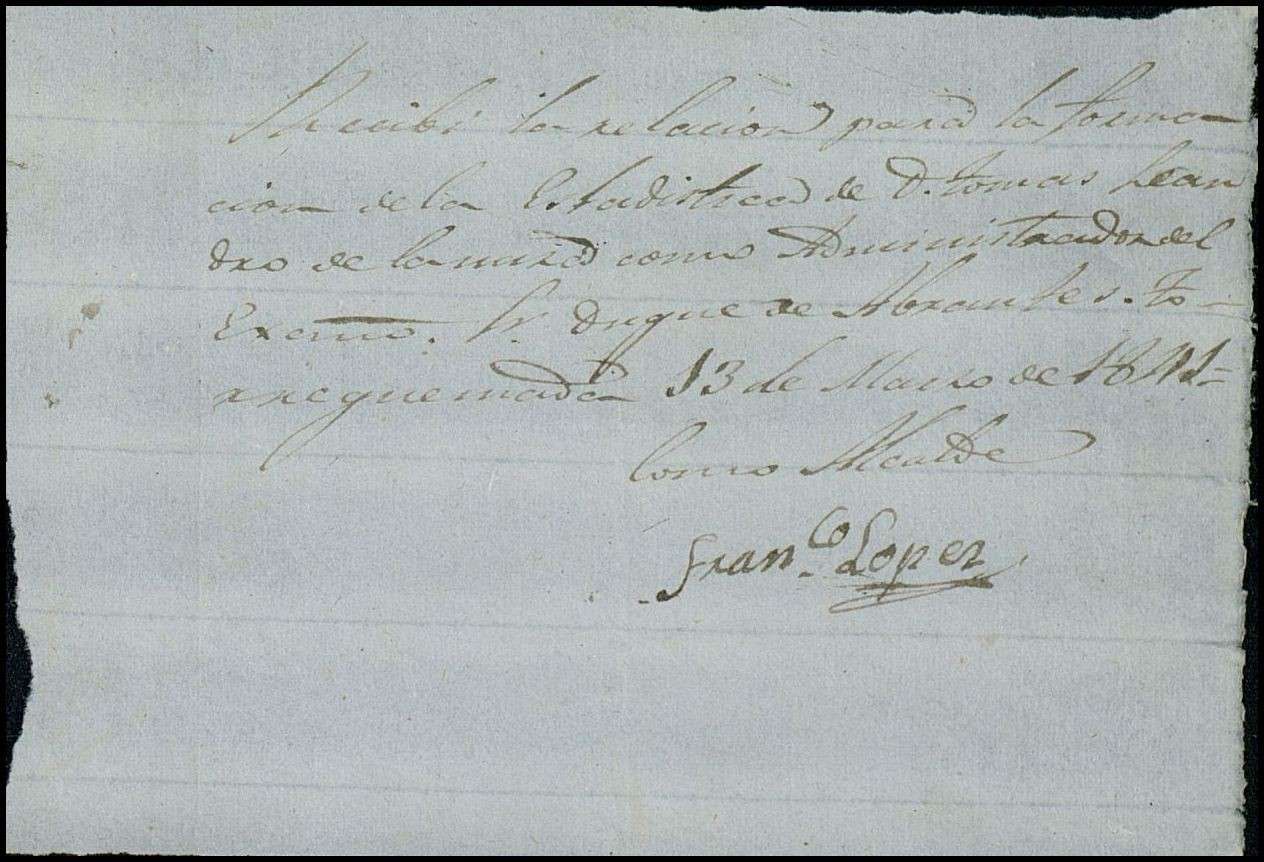 Recibi la relacion para la forma
cion de la Estadistica de D. Tomas Lean
dro de la mira como Administrador del
Excmo. Sr. Duque de Abrantes. To-
rrequemada 13 de Marzo de 1841=
Como Alcalde
Fran.co Lopez